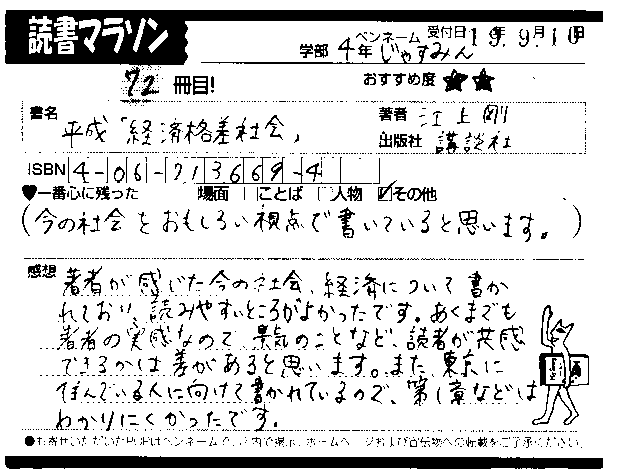 読書マラソン
学部 4年 ペンネーム じゃすみん 受付日 19年9月10日
72 冊目! おすすめ度 ★★
書名 平成「経済格差社会」
著者 江上剛
出版社 講談社
ISBN 4-06-213669-4
♥一番心に残った 場面 □ことば □人物 ☑その他
(今の社会をおもしろい視点で書いていると思います。)
感想 著者が感じた今の社会、経済について書か
れており、読みやすいところがよかったです。あくまでも
著者の実感なので、景気のことなど、読者が共感
できるかは差があると思います。また、東京に
住んでいる人に向けて書かれているので、第1章などは
わかりにくかったです。
●お寄せいただいたPOPはペンネームで、内で掲示、ホームページおよび宣伝物への転載をご了承ください。